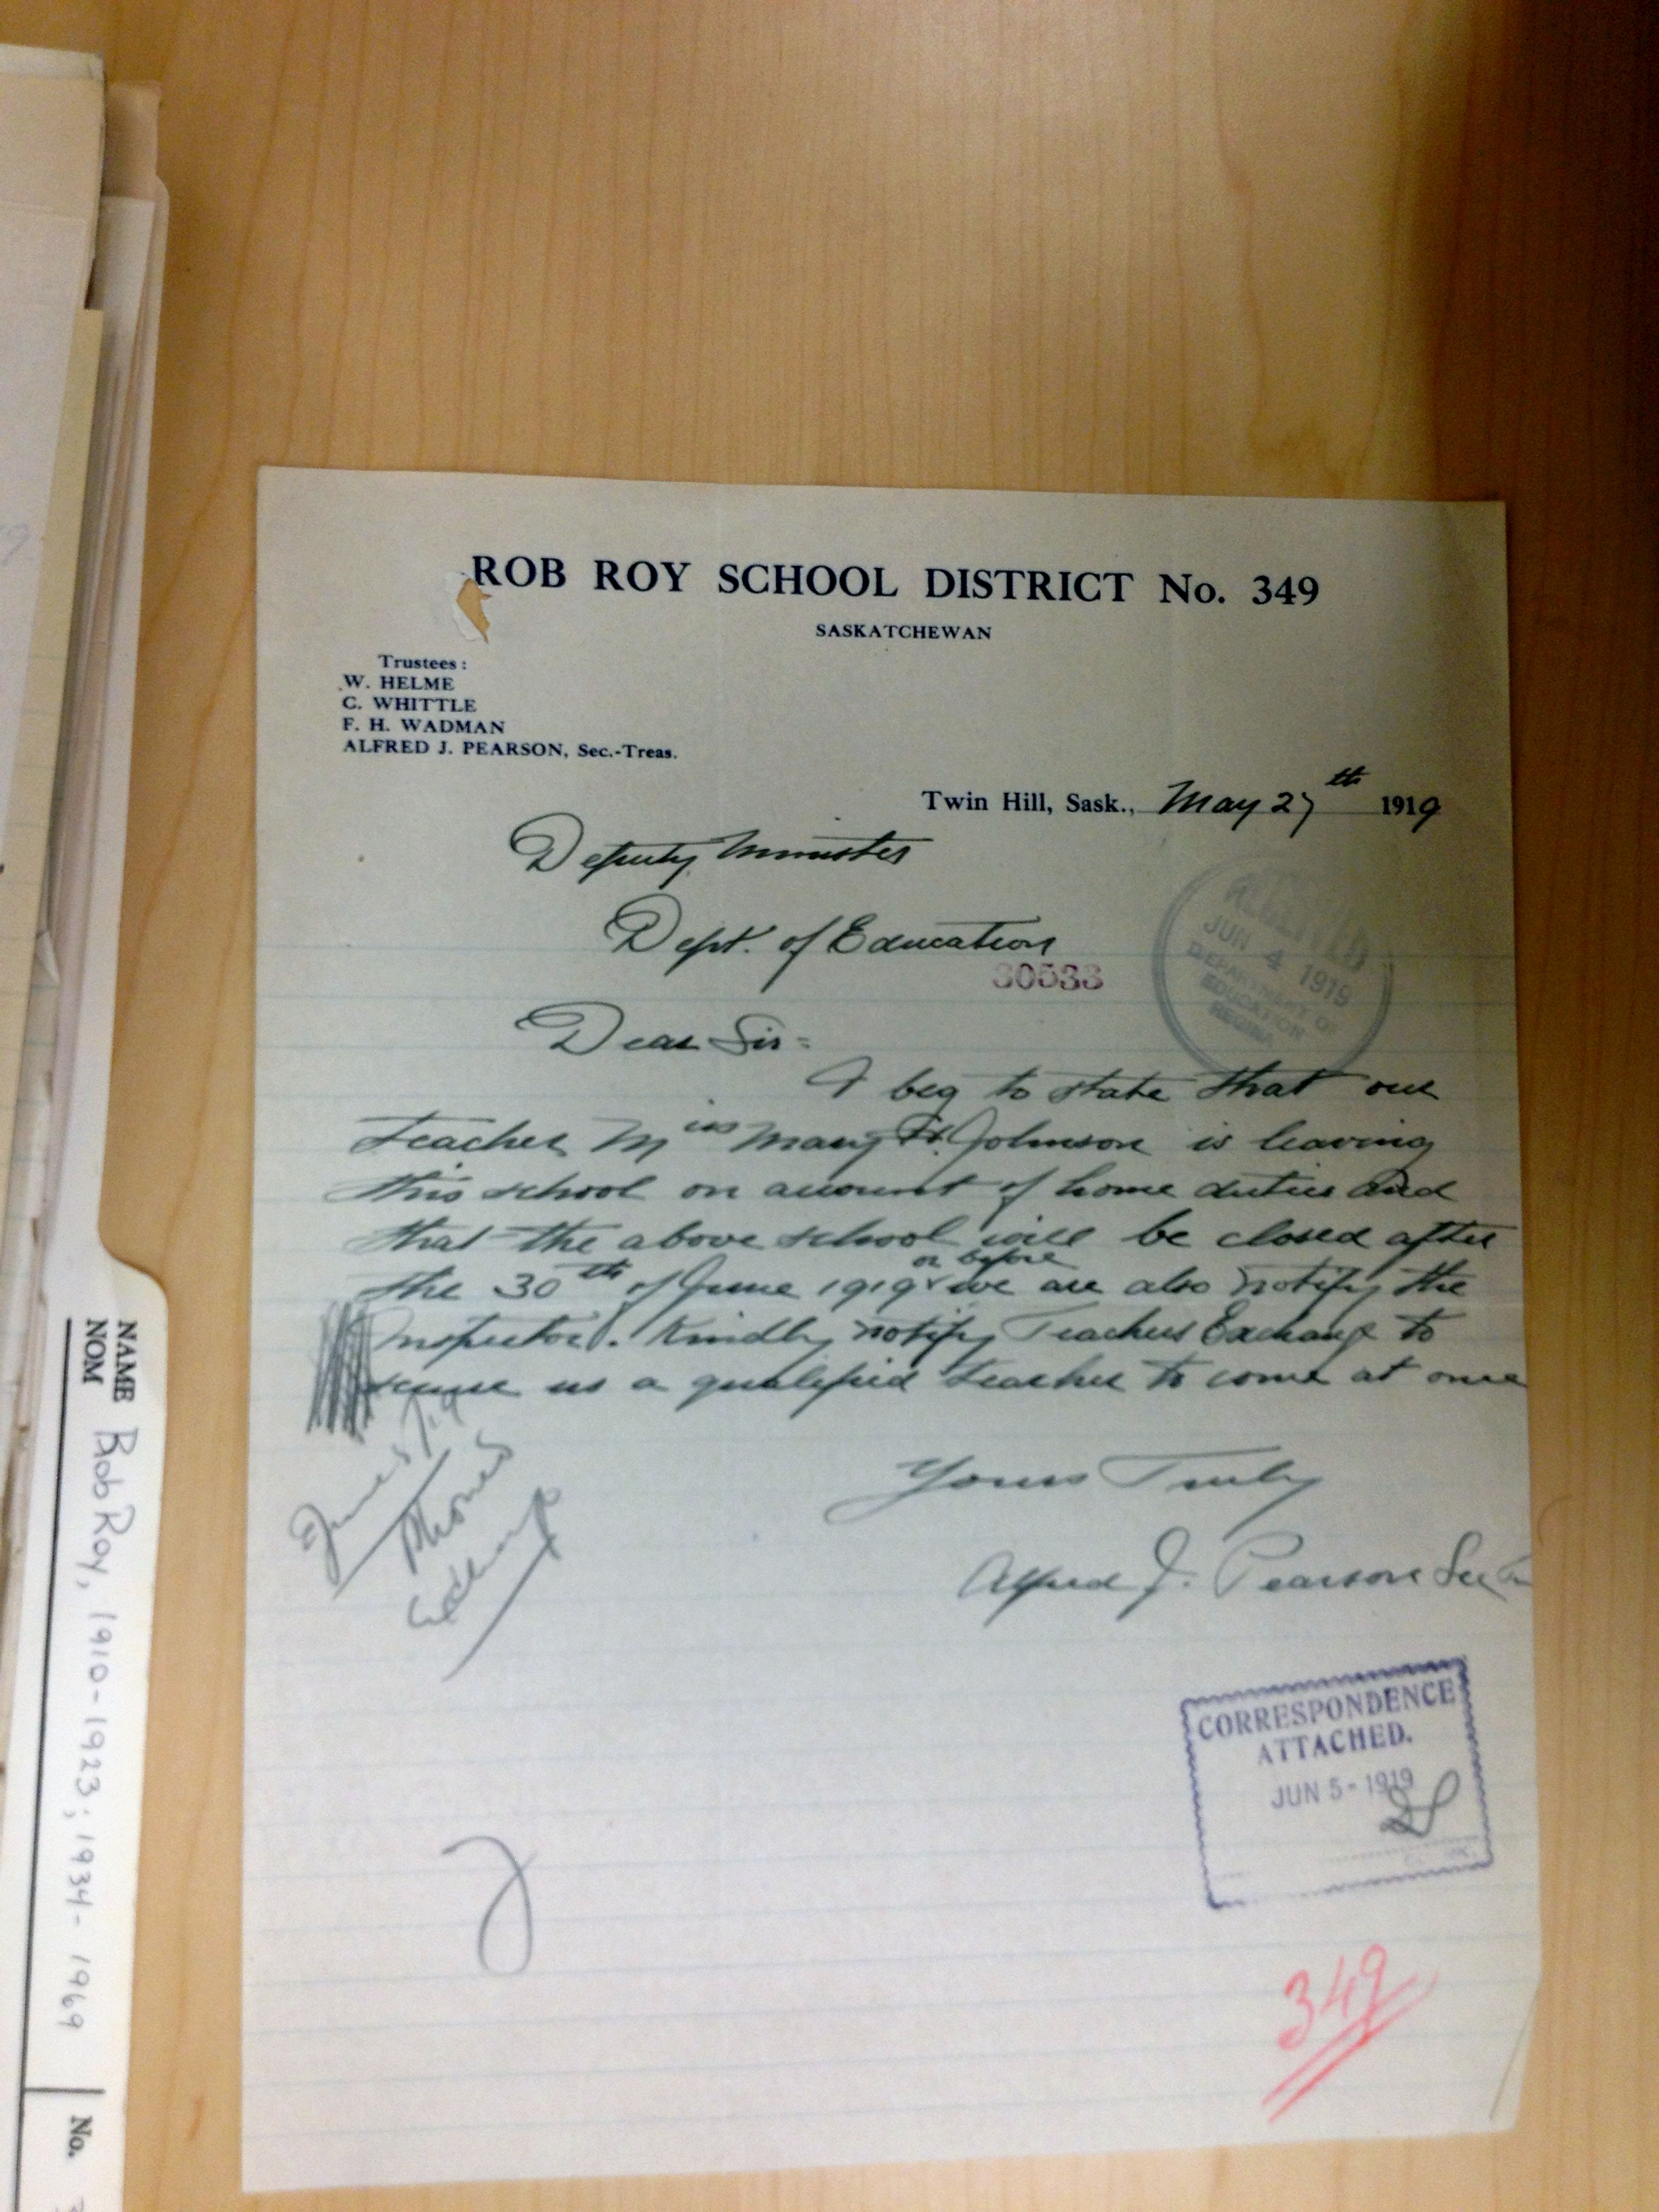 ROB ROY SCHOOL DISTRICT No. 349
SASKATCHEWAN
Trustees:
W. HELME
C. WHITTLE
F. H. WADMAN
ALFRED J. PEARSON, Sec.-Treas.
Twin Hill, Sask., May 27th 1919
Deputy Minister
Dept. of Education
30533
RECEIVED
JUN 4 1919
DEPARTMENT OF
EDUCATION
REGINA
Dear Sir:
I beg to state that our
teacher Miss Mary H. Johnson is leaving
this school on account of home duties and
that the above school will be closed after
or before
the 30th of June 1919 we are also notify the
Inspector. Kindly notify Teachers Exchange to
secure us a qualified teacher to come at once
Yours Truly
Alfred J. Pearson Sec
June 5/19
Exchange
CORRESPONDENCE
ATTACHED.
JUN 5 - 1919
349
NAME Rob Roy, 1910-1923; 1934-1969
NOM
No.